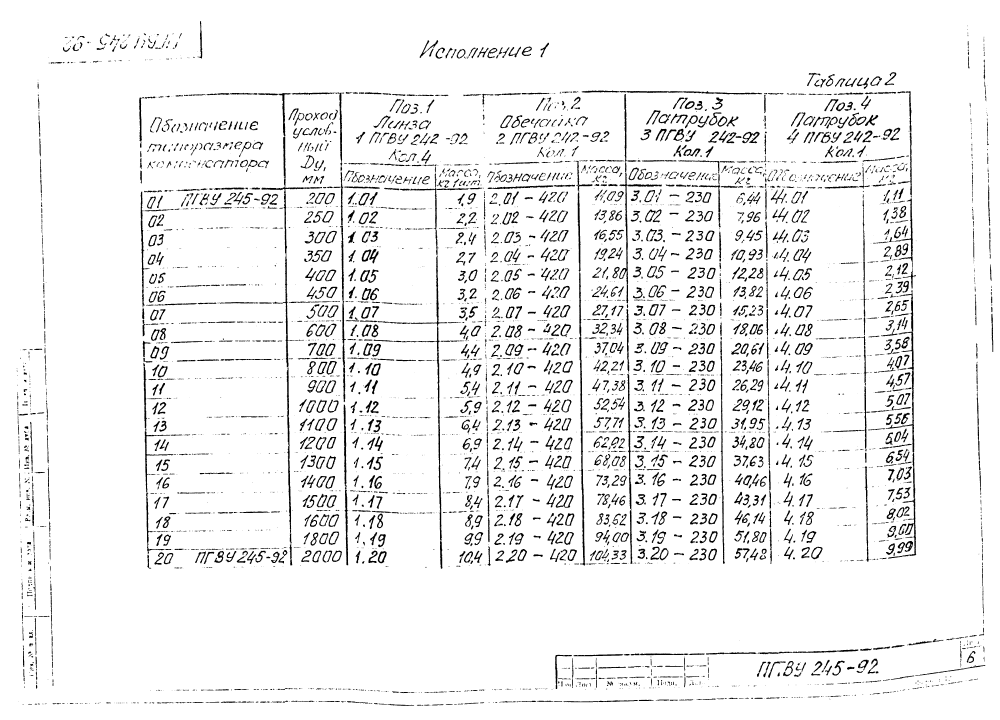 ПГВУ 245-92
Исполнение 1
Таблица 2
Обозначение типоразмера компенсатора | Проход условный Dу, мм | Поз. 1 Линза 1 ПГВУ 242-92 Кол. 4 | Поз. 2 Обечайка 2 ПГВУ 242-92 Кол. 1 | Поз. 3 Патрубок 3 ПГВУ 242-92 Кол. 1 | Поз. 4 Патрубок 4 ПГВУ 242-92 Кол. 1
Обозначение | Масса, кг 1 шт. | Обозначение | Масса, кг | Обозначение | Масса, кг | Обозначение | Масса, кг
01 ПГВУ 245-92 | 200 | 1.01 | 1,9 | 2.01 - 420 | 11,09 | 3.01 - 230 | 6,44 | 4.01 | 1,11
02 | 250 | 1.02 | 2,2 | 2.02 - 420 | 13,86 | 3.02 - 230 | 7,96 | 4.02 | 1,38
03 | 300 | 1.03 | 2,4 | 2.03 - 420 | 16,55 | 3.03. - 230 | 9,45 | 4.03 | 1,64
04 | 350 | 1.04 | 2,7 | 2.04 - 420 | 19,24 | 3.04 - 230 | 10,93 | 4.04 | 2,89
05 | 400 | 1.05 | 3,0 | 2.05 - 420 | 21,80 | 3.05 - 230 | 12,28 | 4.05 | 2,12
06 | 450 | 1.06 | 3,2 | 2.06 - 420 | 24,61 | 3.06 - 230 | 13,82 | 4.06 | 2,39
07 | 500 | 1.07 | 3,5 | 2.07 - 420 | 27,17 | 3.07 - 230 | 15,23 | 4.07 | 2,65
08 | 600 | 1.08 | 4,0 | 2.08 - 420 | 32,34 | 3.08 - 230 | 18,06 | 4.08 | 3,14
09 | 700 | 1.09 | 4,4 | 2.09 - 420 | 37,04 | 3.09 - 230 | 20,61 | 4.09 | 3,58
10 | 800 | 1.10 | 4,9 | 2.10 - 420 | 42,21 | 3.10 - 230 | 23,46 | 4.10 | 4,07
11 | 900 | 1.11 | 5,4 | 2.11 - 420 | 47,38 | 3.11 - 230 | 26,29 | 4.11 | 4,57
12 | 1000 | 1.12 | 5,9 | 2.12 - 420 | 52,54 | 3.12 - 230 | 29,12 | 4.12 | 5,07
13 | 1100 | 1.13 | 6,4 | 2.13 - 420 | 57,71 | 3.13 - 230 | 31,95 | 4.13 | 5,56
14 | 1200 | 1.14 | 6,9 | 2.14 - 420 | 62,92 | 3.14 - 230 | 34,80 | 4.14 | 6,04
15 | 1300 | 1.15 | 7,4 | 2.15 - 420 | 68,08 | 3.15 - 230 | 37,63 | 4.15 | 6,54
16 | 1400 | 1.16 | 7,9 | 2.16 - 420 | 73,29 | 3.16 - 230 | 40,46 | 4.16 | 7,03
17 | 1500 | 1.17 | 8,4 | 2.17 - 420 | 78,46 | 3.17 - 230 | 43,31 | 4.17 | 7,53
18 | 1600 | 1.18 | 8,9 | 2.18 - 420 | 83,62 | 3.18 - 230 | 46,14 | 4.18 | 8,02
19 | 1800 | 1.19 | 9,9 | 2.19 - 420 | 94,00 | 3.19 - 230 | 51,80 | 4.19 | 9,00
20 ПГВУ 245-92 | 2000 | 1.20 | 10,4 | 2.20 - 420 | 104,33 | 3.20 - 230 | 57,48 | 4.20 | 9,99
ПГВУ 245-92
6